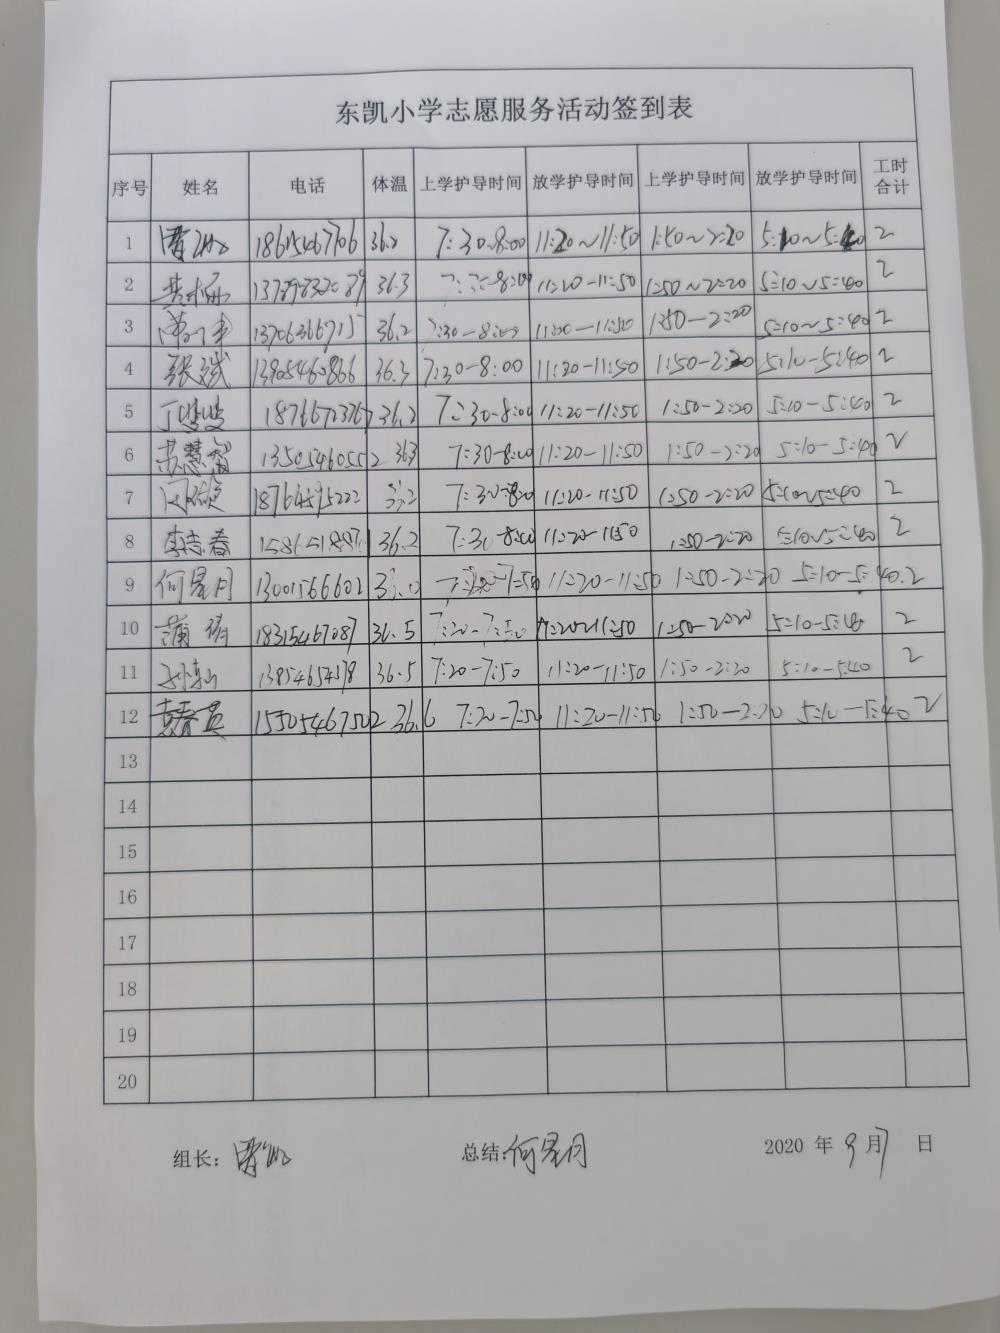 东凯小学志愿服务活动签到表
序号 姓名 电话 体温 上学护导时间 放学护导时间 上学护导时间 放学护导时间 工时合计
1 18615467706 36.2 7:30-8:00 11:20~11:50 1:50~2:20 5:10~5:40 2
2 36.3 8:00 11:20-11:50 1:50~2:20 5:10~5:40 2
3 13706366715 36.2 7:30-8:00 11:20-11:50 1:50-2:20 5:10~5:40 2
4 张斌 13905460866 36.3 7:30-8:00 11:20-11:50 1:50-2:20 5:10-5:40 2
5 丁雙雙 18766723767 36.2 7:30-8:00 11:20-11:50 1:50-2:20 5:10-5:40 2
6 苏慧智 13505460552 36.3 7:30-8:00 11:20-11:50 1:50-2:20 5:10-5:40 2
7 18764595222 7:30-8:00 11:20-11:50 1:50-2:20 5:10~5:40 2
8 李志春 36.2 7:30-8:00 11:20-11:50 1:50-2:20 5:10~5:40 2
9 何星月 13001566602 7:20-7:50 11:20-11:50 1:50-2:20 5:10-5:40 2
10 蒲 18315467087 36.5 7:20-7:50 11:20-11:50 1:50-2:20 5:10-5:40 2
11 13854654578 36.5 7:20-7:50 11:20-11:50 1:50-2:20 5:10-5:40 2
12 15505467502 36.6 7:20-7:50 11:20-11:50 1:50-2:20 5:10-5:40 2
13
14
15
16
17
18
19
20
组长: 总结:何星月 2020 年 9 月 7 日